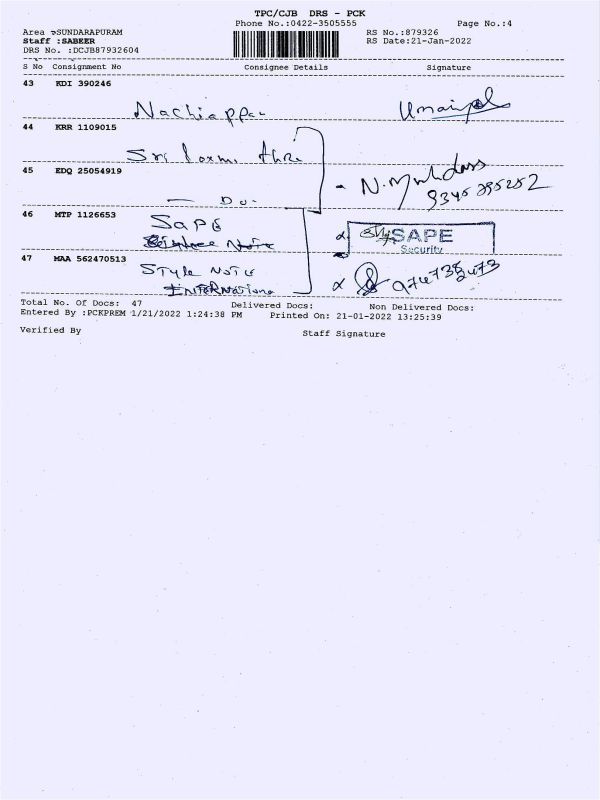 TPC/CJB DRS - PCK
Phone No.:0422-3505555 Page No.:4
Area :SUNDARAPURAM RS No.:879326
Staff :SABEER RS Date:21-Jan-2022
DRS No. :DCJB87932604
S No Consignment No Consignee Details Signature
43 KDI 390246
Nachiappan
44 KRR 1109015
Sri Laxmi
45 EDQ 25054919
N. Muthdass
— Do - 9345 395252
46 MTP 1126653 SAPE
SAPE
Security
47 MAA 562470513 STYLE NOTE
INTERNATIONAL
Total No. Of Docs: 47 Delivered Docs: Non Delivered Docs:
Entered By :PCKPREM 1/21/2022 1:24:38 PM Printed On: 21-01-2022 13:25:39
Verified By Staff Signature